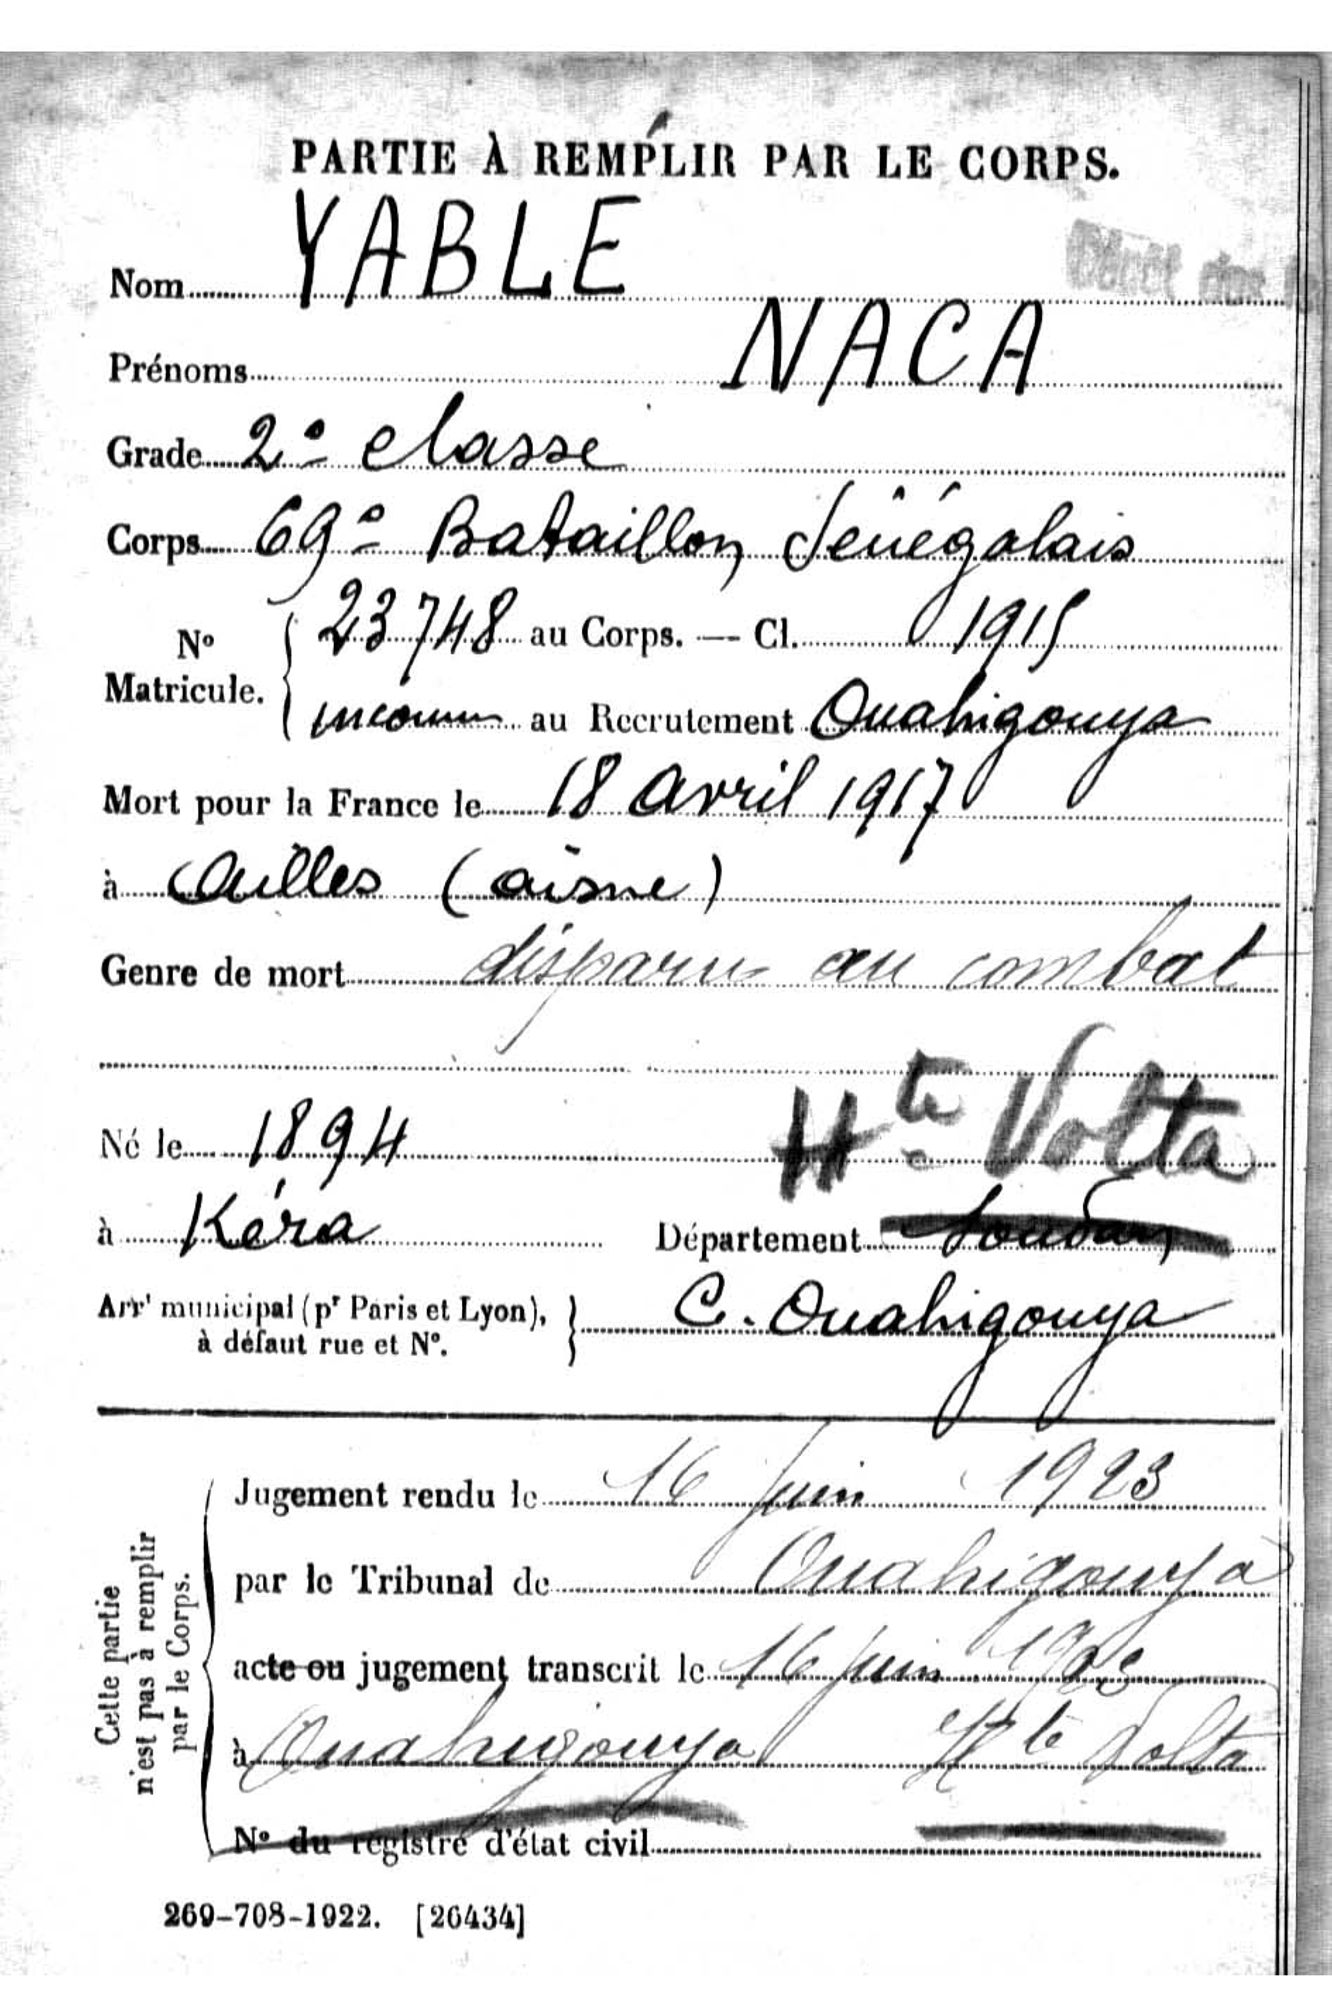 PARTIE À REMPLIR PAR LE CORPS.
Dépôt des
Nom YABLE
Prénoms NACA
Grade 2e classe
Corps 69e Bataillon Sénégalais
No Matricule. 23748 au Corps. — Cl. 1915
inconnu au Recrutement Ouahigouya
Mort pour la France le 18 Avril 1917
à Ailles (aisne)
Genre de mort disparu au combat
Hte Volta
Né le 1894
à Kéra Département Soudan
Arrt municipal (pr Paris et Lyon), à défaut rue et No. C. Ouahigouya
Cette partie n'est pas à remplir par le Corps.
Jugement rendu le 16 juin 1923
par le Tribunal de Ouahigouya
acte ou jugement transcrit le 16 juin 1923
à Ouahigouya Hte Volta
No du registre d'état civil
269-708-1922. [26434]